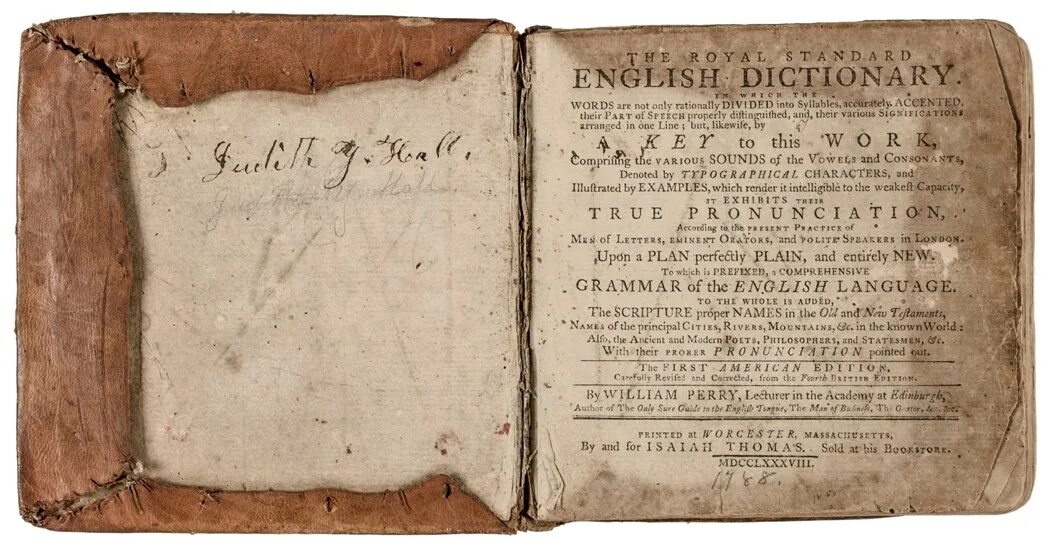 Judith Y. Hall,
Hall
THE ROYAL STANDARD
ENGLISH DICTIONARY.
IN WHICH THE
WORDS are not only rationally DIVIDED into Syllables, accurately ACCENTED,
their PART of SPEECH properly diſtinguiſhed, and, their various SIGNIFICATIONS
arranged in one Line; but, likewiſe, by
A KEY to this WORK,
Compriſing the VARIOUS SOUNDS of the VOWELS and CONSONANTS,
Denoted by TYPOGRAPHICAL CHARACTERS, and
Illuſtrated by EXAMPLES, which render it intelligible to the weakeſt Capacity,
IT EXHIBITS THEIR
TRUE PRONUNCIATION,
According to the PRESENT PRACTICE of
MEN of LETTERS, EMINENT ORATORS, and POLITE SPEAKERS in LONDON.
Upon a PLAN perfectly PLAIN, and entirely NEW.
To which is PREFIXED, a COMPREHENSIVE
GRAMMAR of the ENGLISH LANGUAGE.
TO THE WHOLE IS ADDED,
The SCRIPTURE proper NAMES in the Old and New Teſtaments,
NAMES of the principal CITIES, RIVERS, MOUNTAINS, &c. in the known World:
Alſo, the Ancient and Modern POETS, PHILOSOPHERS, and STATESMEN, &c.
With their PROPER PRONUNCIATION pointed out.
The FIRST AMERICAN EDITION,
Carefully Reviſed and Corrected, from the Fourth BRITISH EDITION.
By WILLIAM PERRY, Lecturer in the Academy at Edinburgh,
Author of The Only Sure Guide to the Engliſh Tongue, The Man of Buſineſs, The Orator, &c. &c.
PRINTED at WORCESTER, MASSACHUSETTS,
By and for ISAIAH THOMAS. Sold at his BOOKSTORE.
MDCCLXXXVIII.
1788.